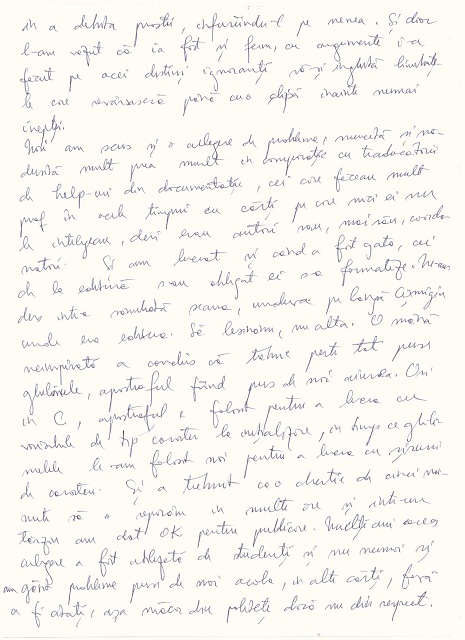 în a debita prostii, înfuriindu-l pe nenea. Și doar
l-am văzut că i-a fost și ferm, cu argumente i-a
făcut pe acei distinși ignoranți, să-și înghită
le care revărsaseră până cu o clipă înainte numai
inepții.
Noi am scos și o culegere de probleme, muncită și
mult prea mult în comparație cu traducătorii
de help-uri din documentație, cei care făceau mult
praf în acele timpuri cu cărți pe care nici ei nu
le înțelegeau, deși erau autori sau, mai rău, coordo
natori. Și am lucrat și când a fost gata, cei
de la editură s-au obligat ei s-o formateze. Ne-am
dus într-o sâmbătă seara, undeva pe lângă Cișmigiu
unde era editura. Să lucrăm, nu alta. O mână
neinspirată a condus că trebuie peste tot puse
ghilimele, apostroful fiind pus de noi aiurea. Ori
în C, apostroful e folosit pentru a lucra cu
variabile de tip caracter la inițializare, în timp ce ghili
melele le-am folosit noi pentru a lucra cu șiruri
de caractere. Și a trebuit ca o chestie de cinci mi-
nute să o reparăm în multe ore și într-un
târziu am dat OK pentru publicare. Mulți ani acea
culegere a fost utilizată de studenți și nu numai și
am găsit probleme puse de noi acolo, în alte cărți, fără
a fi citați, așa măcar din politețe dacă nu din respect.